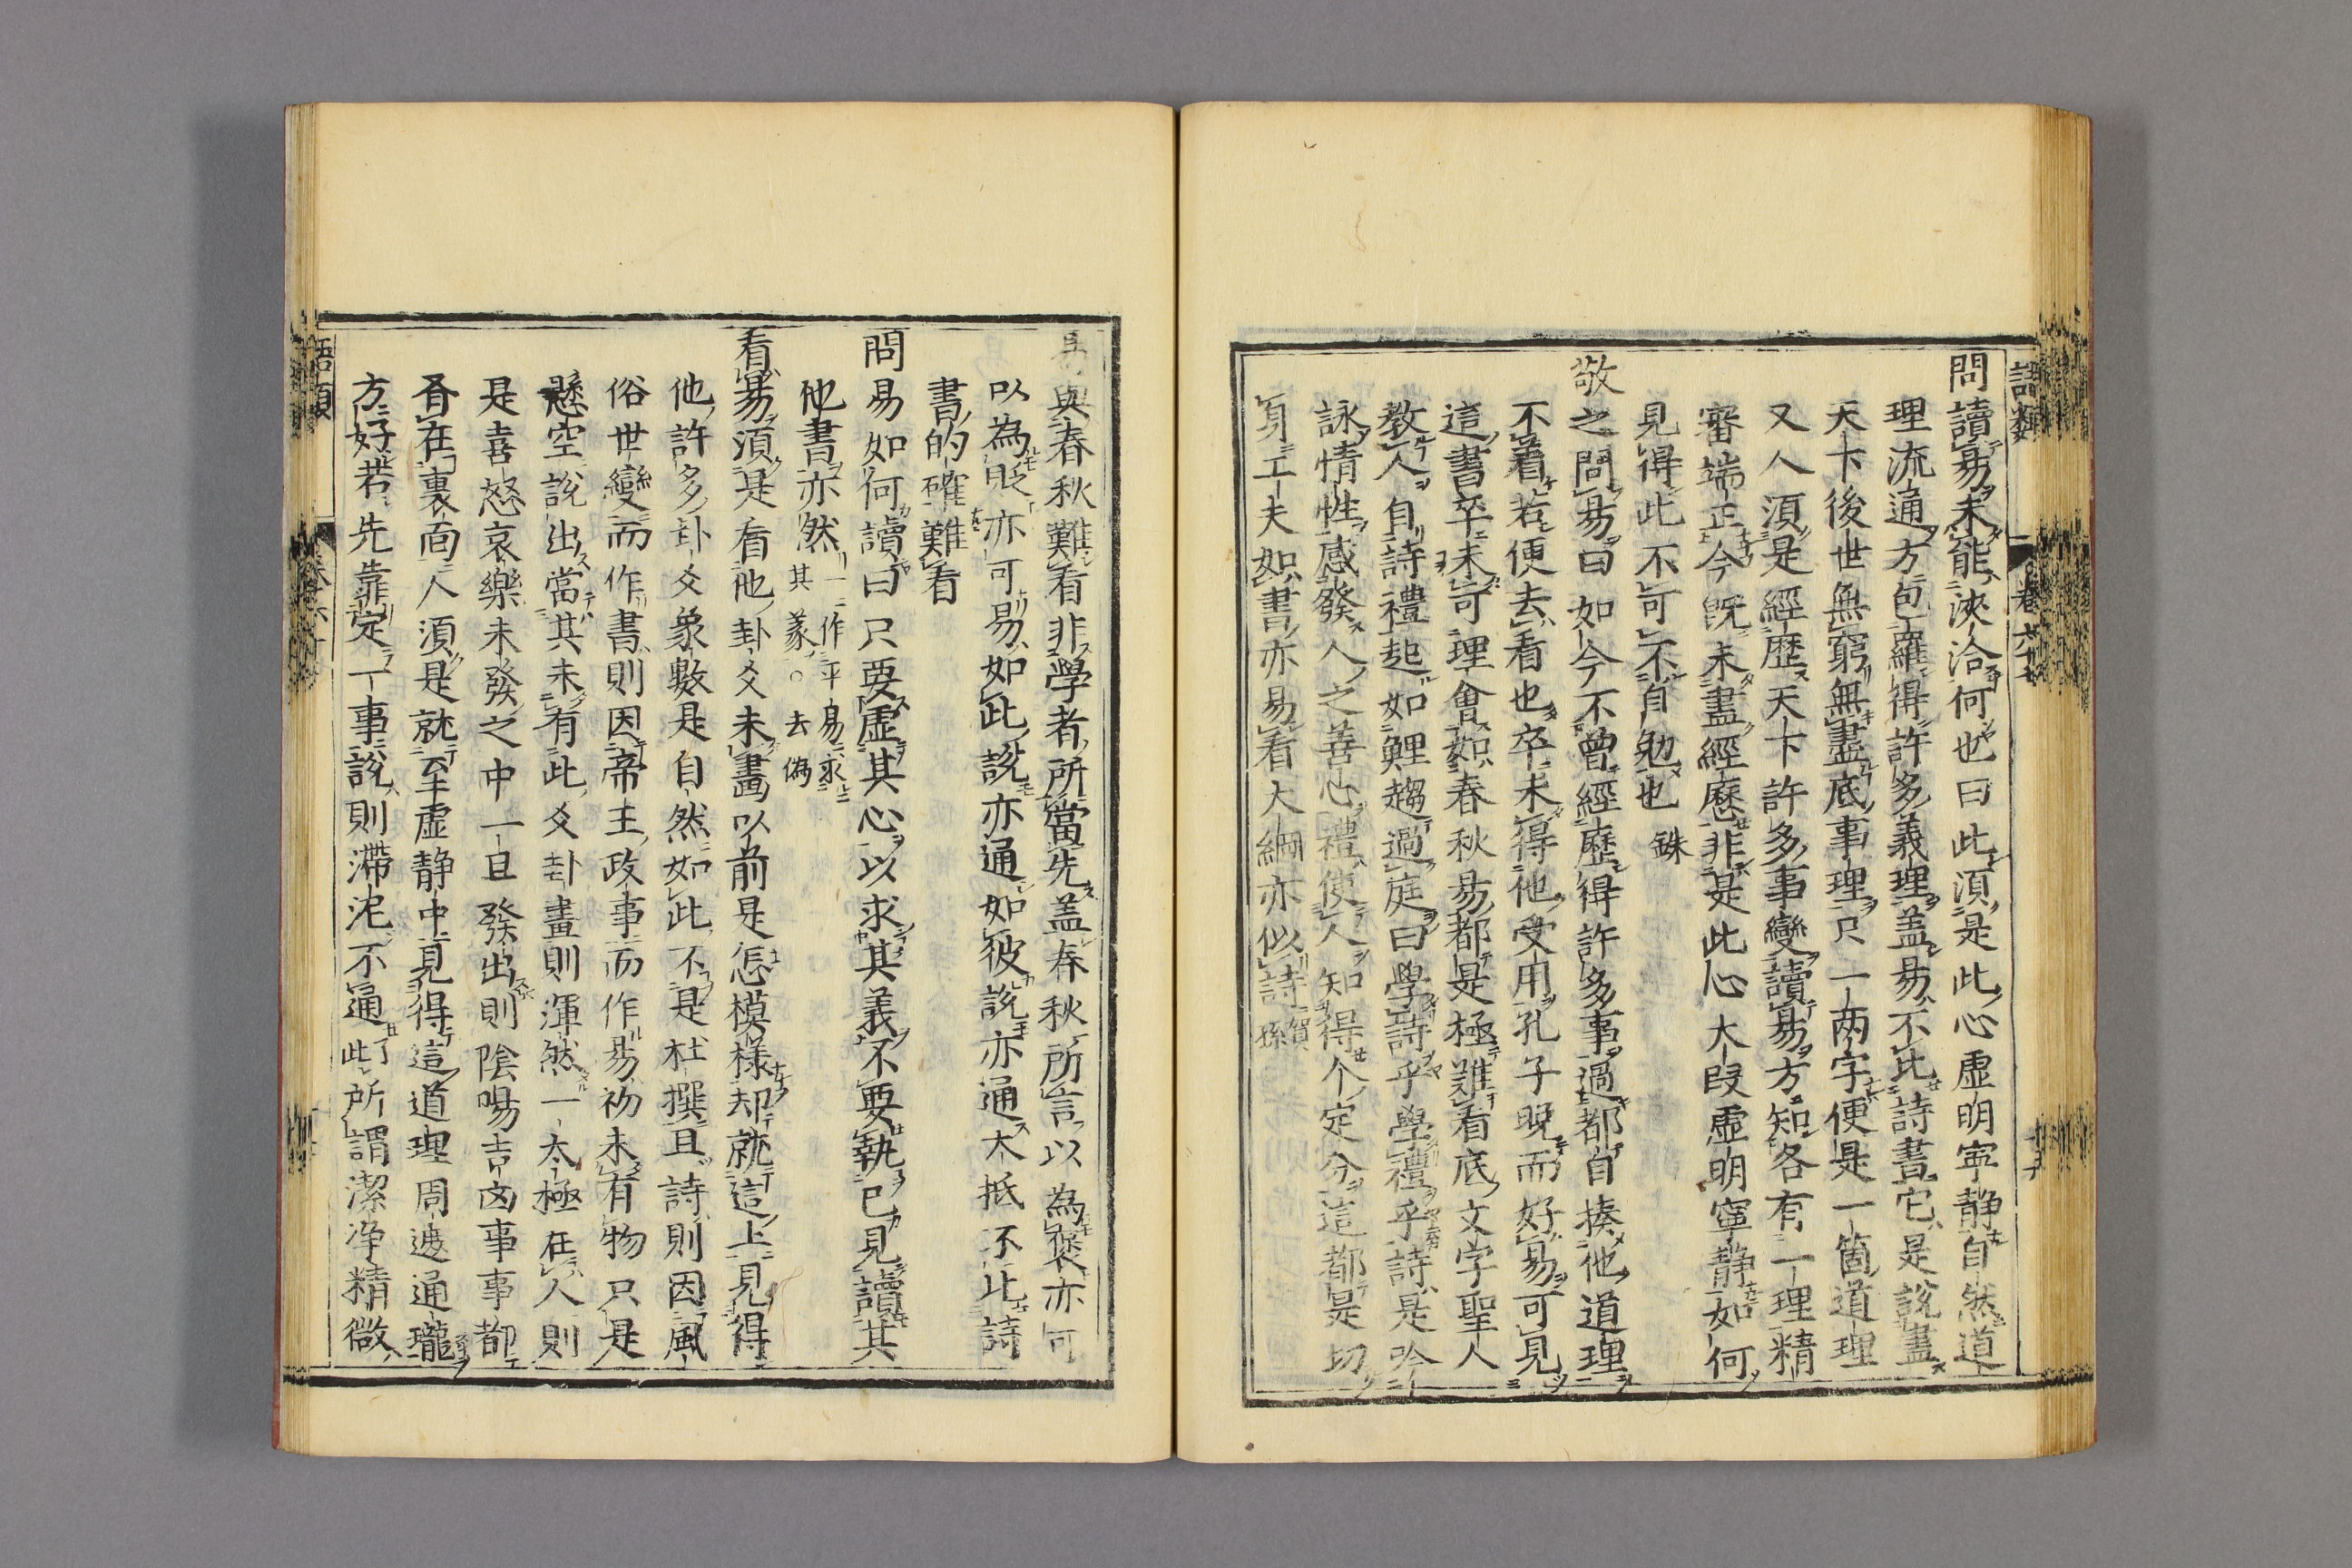 語類
卷六十七
問讀易未能浹洽何也曰此須是此心虛明寧静自然道
理流通方包羅得許多義理盖易不比詩書它是說盡
天下後世無窮無盡底事理只一兩字便是一箇道理
又人須是經歴天下許多事變讀易方知各有一理精
審端正今既未盡經歴非是此心大段虛明寧静如何
見得此不可不自勉也 銖
敬之問易曰如今不曾經歴得許多事過都自揍他道理
不着若便去看也卒未得他受用孔子晚而好易可見
這書卒未可理會如春秋易都是極難看底文字聖人
教人自詩禮起如鯉趨過庭曰學詩乎學禮乎詩是吟
詠情性感發人之善心禮使人知得个定分這都是切
身工夫如書亦易看大綱亦似詩 賀孫
易與春秋難看非學者所當先盖春秋所言以為褒亦可
以為貶亦可易如此說亦通如彼說亦通大抵不比詩
書的確難看
問易如何讀曰只要虛其心以求其義不要執己見讀其
他書亦然 一作平易求其義○去偽
看易須是看他卦爻未畫以前是怎模様却就這上見得
他許多卦爻象數是自然如此不是杜撰且詩則因風
俗世變而作書則因帝王政事而作易初未有物只是
懸空說出當其未有此爻卦畫則渾然一太極在人則
是喜怒哀樂未發之中一旦發出則陰陽吉凶事事都
有在裏面人須是就至虛静中見得這道理周遮通瓏
方好若先靠定一事說則滯泥不通了此所謂潔净精微
語類